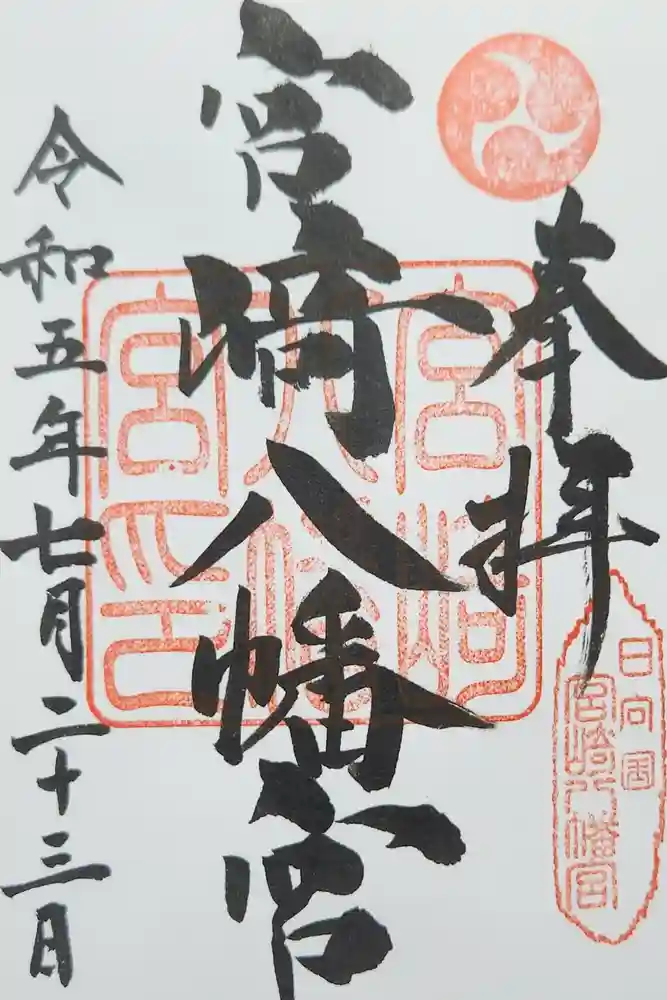 奉拝
日向国
宮崎八幡宮
宮崎八幡宮
宮崎八幡宮印
令和五年七月二十三日